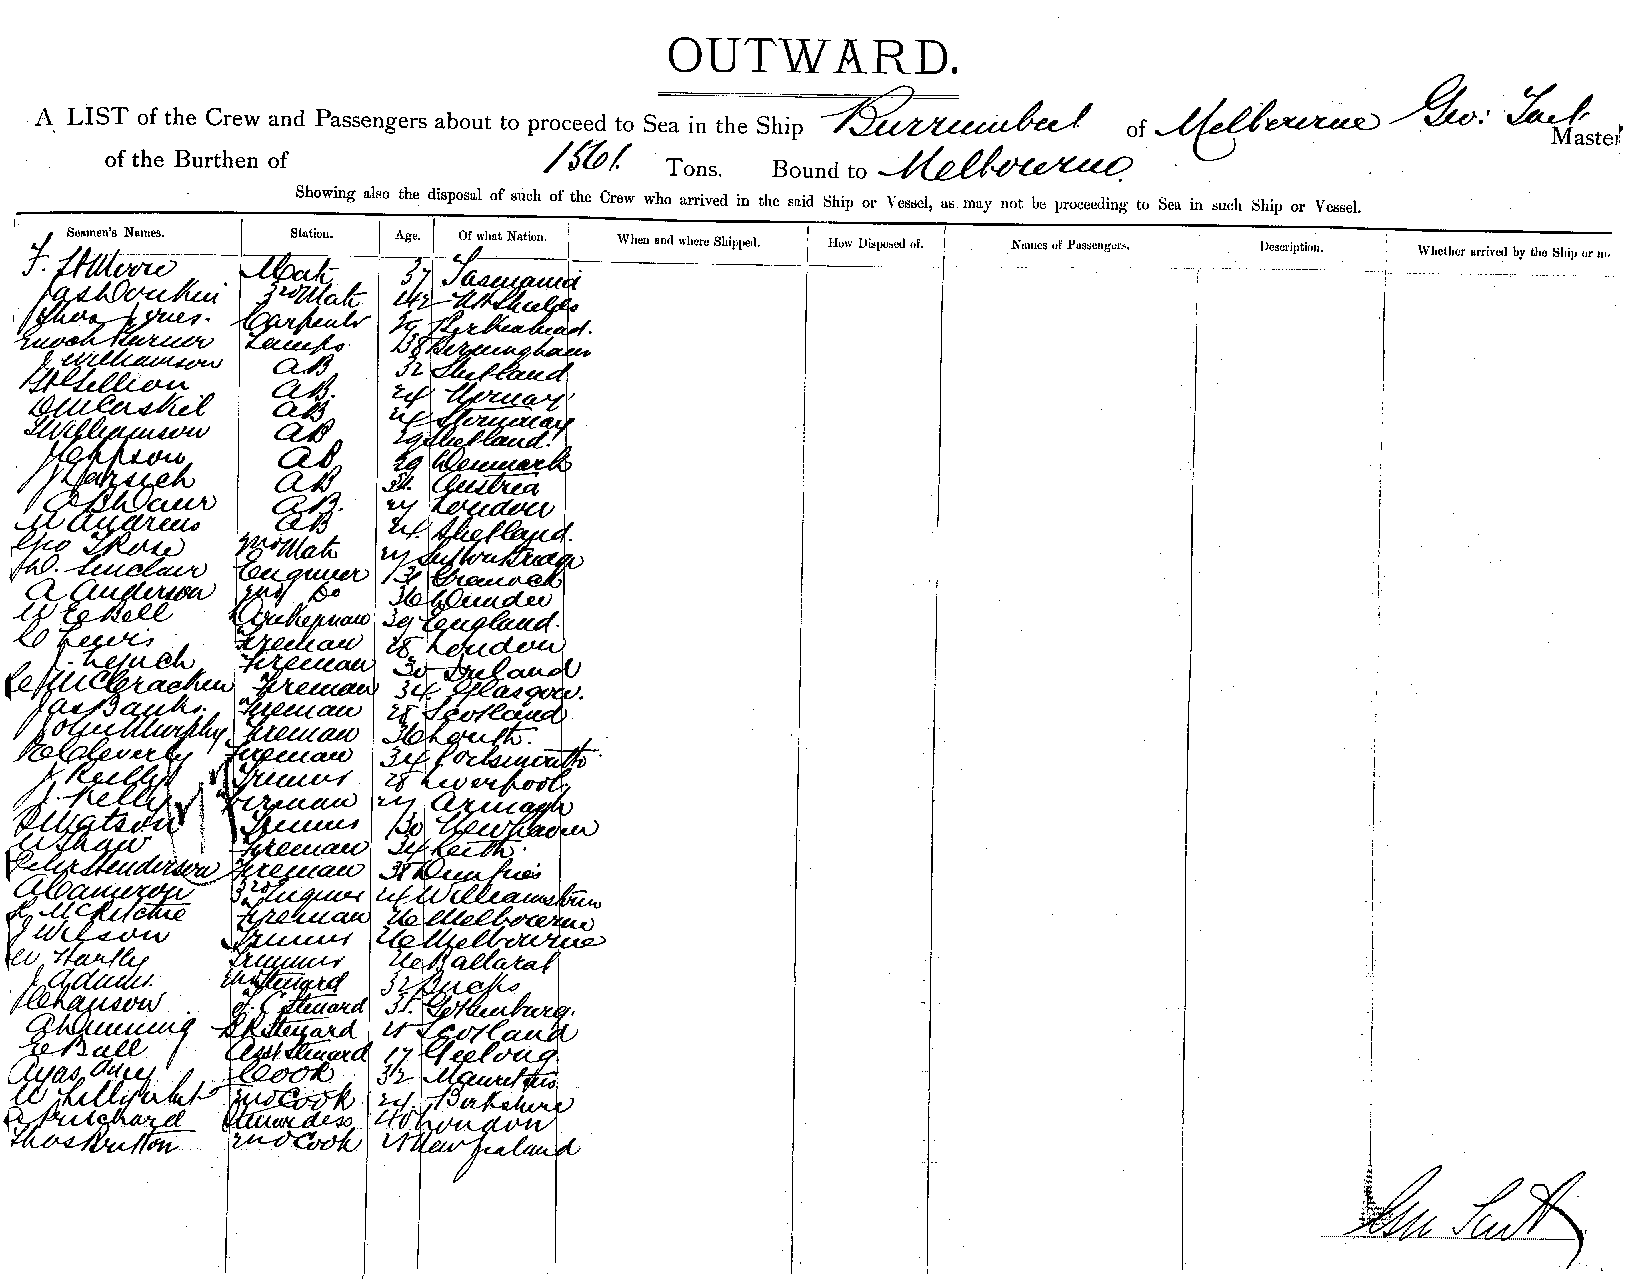 OUTWARD.
A LIST of the Crew and Passengers about to proceed to Sea in the Ship Burrumbeet of Melbourne Geo: Master
of the Burthen of 1561. Tons. Bound to Melbourne.
Showing also the disposal of such of the Crew who arrived in the said Ship or Vessel, as may not be proceeding to Sea in such Ship or Vessel.
Seamen's Names. Station. Age. Of what Nation. When and where Shipped. How Disposed of. Names of Passengers. Description. Whether arrived by the Ship or n
F. H Moore Mate 37 Tasmania
Jas 3rd Mate 42 Nth Shields
Thos Jones. Carpenter 29 Birkenhead.
Enoch Turner Lamps 38 Birmingham
J Williamson AB 32 Shetland
AB. 24 Norway
D McCaskil AB 24 Stornoway
J Williamson AB 29 Shetland.
J Jeppson AB 29 Denmark
J AB 34. Austria
AB. 27 London
W Andrews AB 24. Shetland.
Geo J Rose 2nd Mate 27 Sutton Bridge
Jno. Sinclair Engineer 34 Greenock
A Anderson 2nd Do 36 Dundee
W E Bell Donkeyman 39 England.
C Lewis Fireman 28 London
J. Lynch Fireman 30 Ireland
McCrachen Fireman 34. Glasgow.
Jas Banks. Fireman 28 Scotland
John Murphy Fireman 36 Louth.
R Cleverly Fireman 34 Portsmouth
J Reilly Trimmer 28 Liverpool
J. Kelly Fireman 27 Armagh
Watson Trimmer 30 Newhaven
W Shaw Fireman 34 Leith.
Peter Henderson Fireman 38 Dumfries
A Cameron 3rd Engineer 24 Williamstown
R McRitchie Fireman 26 Melbourne
J Wilson Trimmer 26 Melbourne
W Hartly Trimmer 26 Ballarat
J Adams. Steward 32 Bucks
Hanson F. C Steward 31. Gothenburg.
A Cumming B R Steward 21 Scotland
E Ball Asst Steward 17 Geelong
Cook 32 Mauritius
W 2nd Cook 24 Berkshire
Prichard Stewardess 40 London
Thos Britton 2nd Cook 21 New Zealand